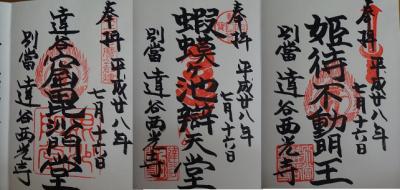 奉拝 平成廿八年
七月十六日
達谷窟毘沙門堂
別當 達谷西光寺
奉拝 平成廿八年
七月十六日
蝦蟆ヶ池辯天堂
別當 達谷西光寺
奉拝 平成廿八年
七月十六日
姫待不動明王
別當 達谷西光寺